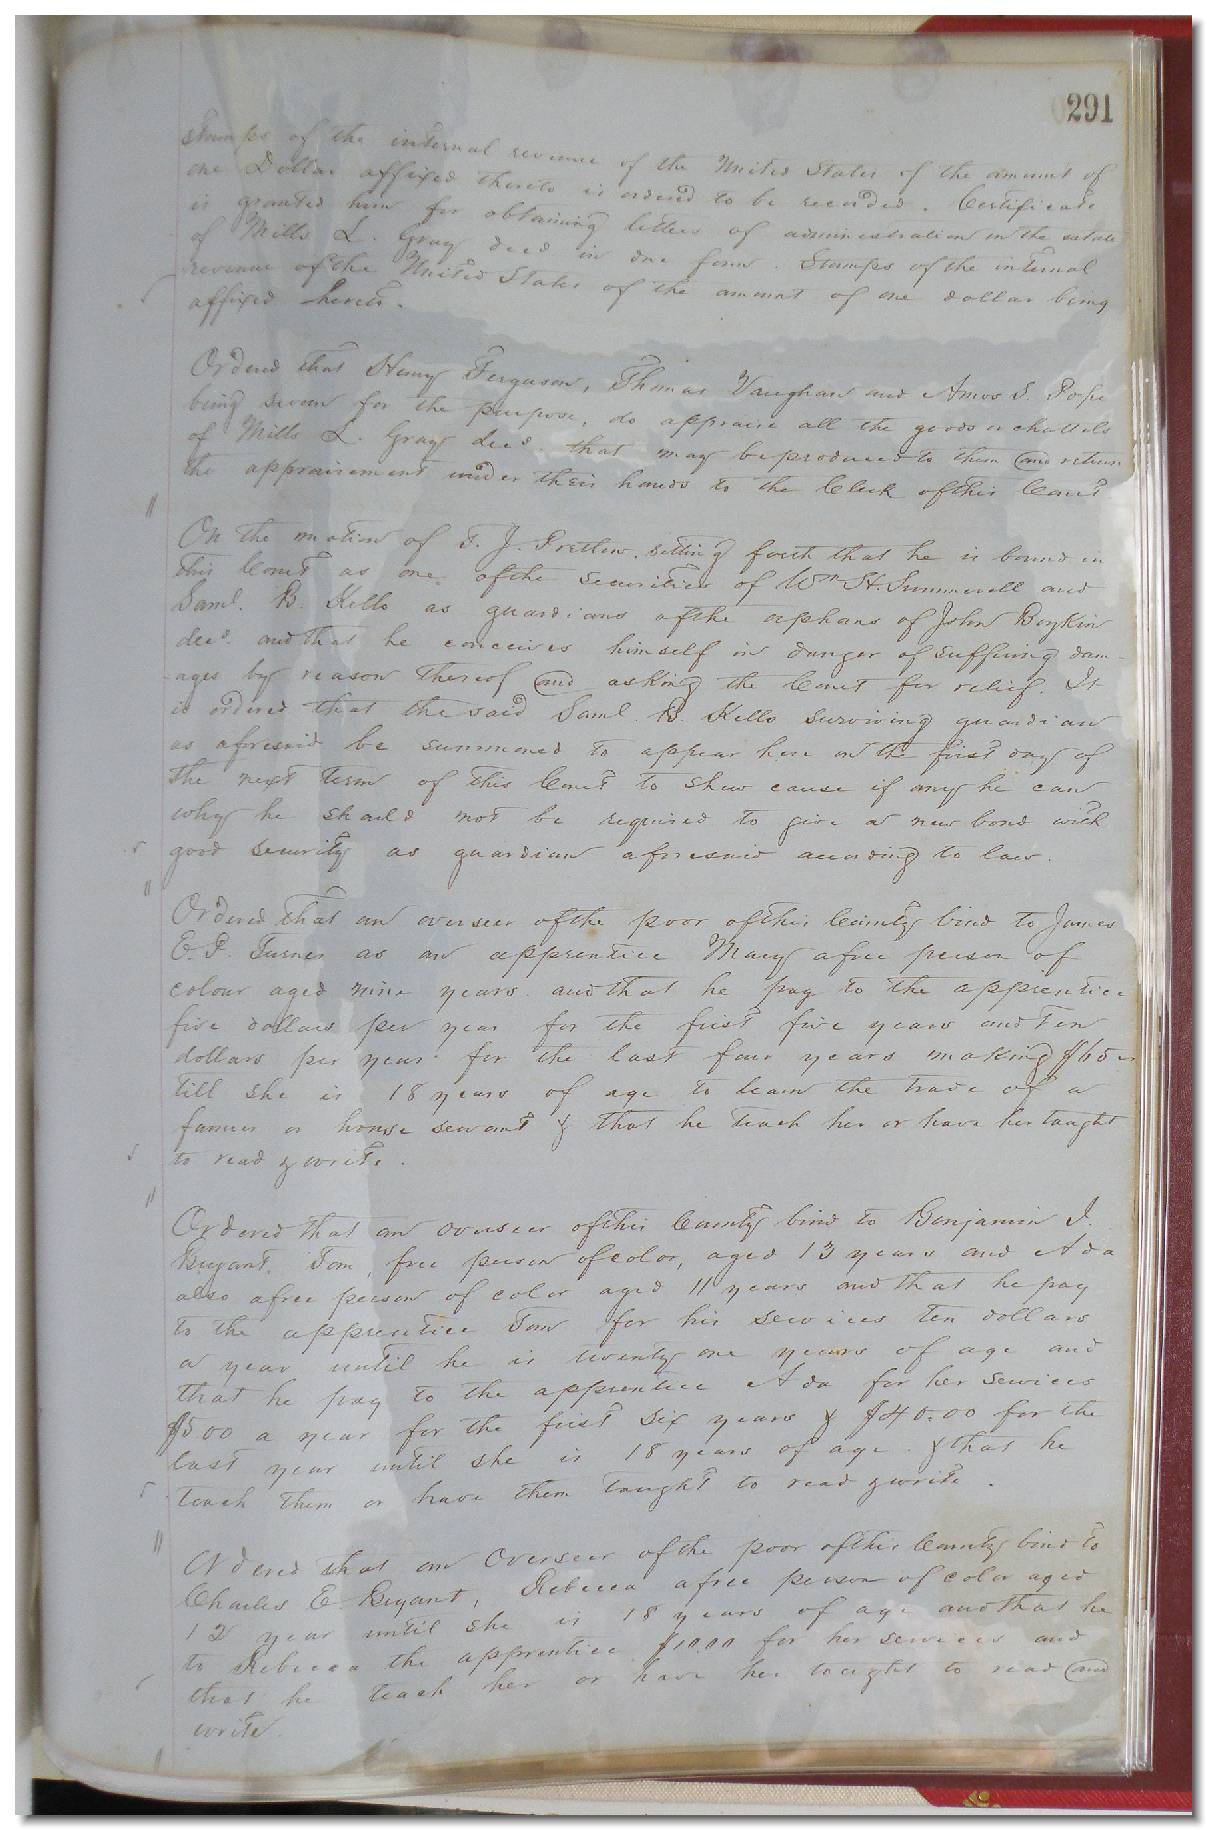 291
stamps of the internal revenue of the United States of the amount of
one Dollar affixed thereto is ordered to be recorded. Certificate
is granted him for obtaining letters of administration in the estate
of Mills L. Gray decd in due form. Stamps of the internal
revenue of the United States of the amount of one dollar being
affixed hereto.
Ordered that Henry Ferguson, Thomas Vaughan and Amos S. Pope
being sworn for the purpose, do appraise all the goods & chattels
of Mills L. Gray decd. that may be produced to them and return
the appraisement under their hands to the Clerk of this Court
On the motion of T. J. Pretlow, setting forth that he is bound in
this Court as one of the securities of Wm H. Summerell and
Saml. B. Kello as guardians of the orphans of John Boykin
decd. and that he conceives himself in danger of suffering dam-
ages by reason thereof and asking the Court for relief. It
is ordered that the said Saml. B. Kello surviving guardian
as aforesaid be summoned to appear here on the first day of
the next term of this Court to shew cause if any he can
why he should not be required to give a new bond with
good security as guardian aforesaid according to law.
Ordered that an overseer of the poor of this County bind to James
E. P. Turner as an apprentice Mary a free person of
colour aged nine years and that he pay to the apprentice
five dollars per year for the first five years and ten
dollars per year for the last four years making $65
till she is 18 years of age to learn the trade of a
farmer or house servant & that he teach her or have her taught
to read & write.
Ordered that an overseer of this County bind to Benjamin J.
Bryant, Tom, free person of color, aged 13 years and Ada
also a free person of color aged 11 years and that he pay
to the apprentice Tom for his services ten dollars
a year until he is twenty one years of age and
that he pay to the apprentice Ada for her services
$5.00 a year for the first six years & $40.00 for the
last year until she is 18 years of age. & that he
teach them or have them taught to read & write.
Ordered that an Overseer of the poor of this County bind to
Charles E. Bryant, Rebecca a free person of color aged
12 year until she is 18 years of age and that he
to Rebecca the apprentice $10.00 for her services and
that he teach her or have her taught to read and
write.